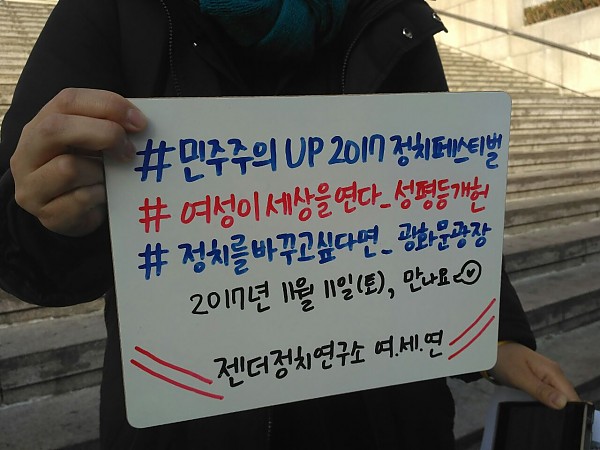 #민주주의 UP 2017 정치페스티벌
# 여성이 세상을 연다_성평등개헌
# 정치를바꾸고싶다면_ 광화문광장
2017년 11월 11일(토), 만나요
젠더정치연구소 여.세.연